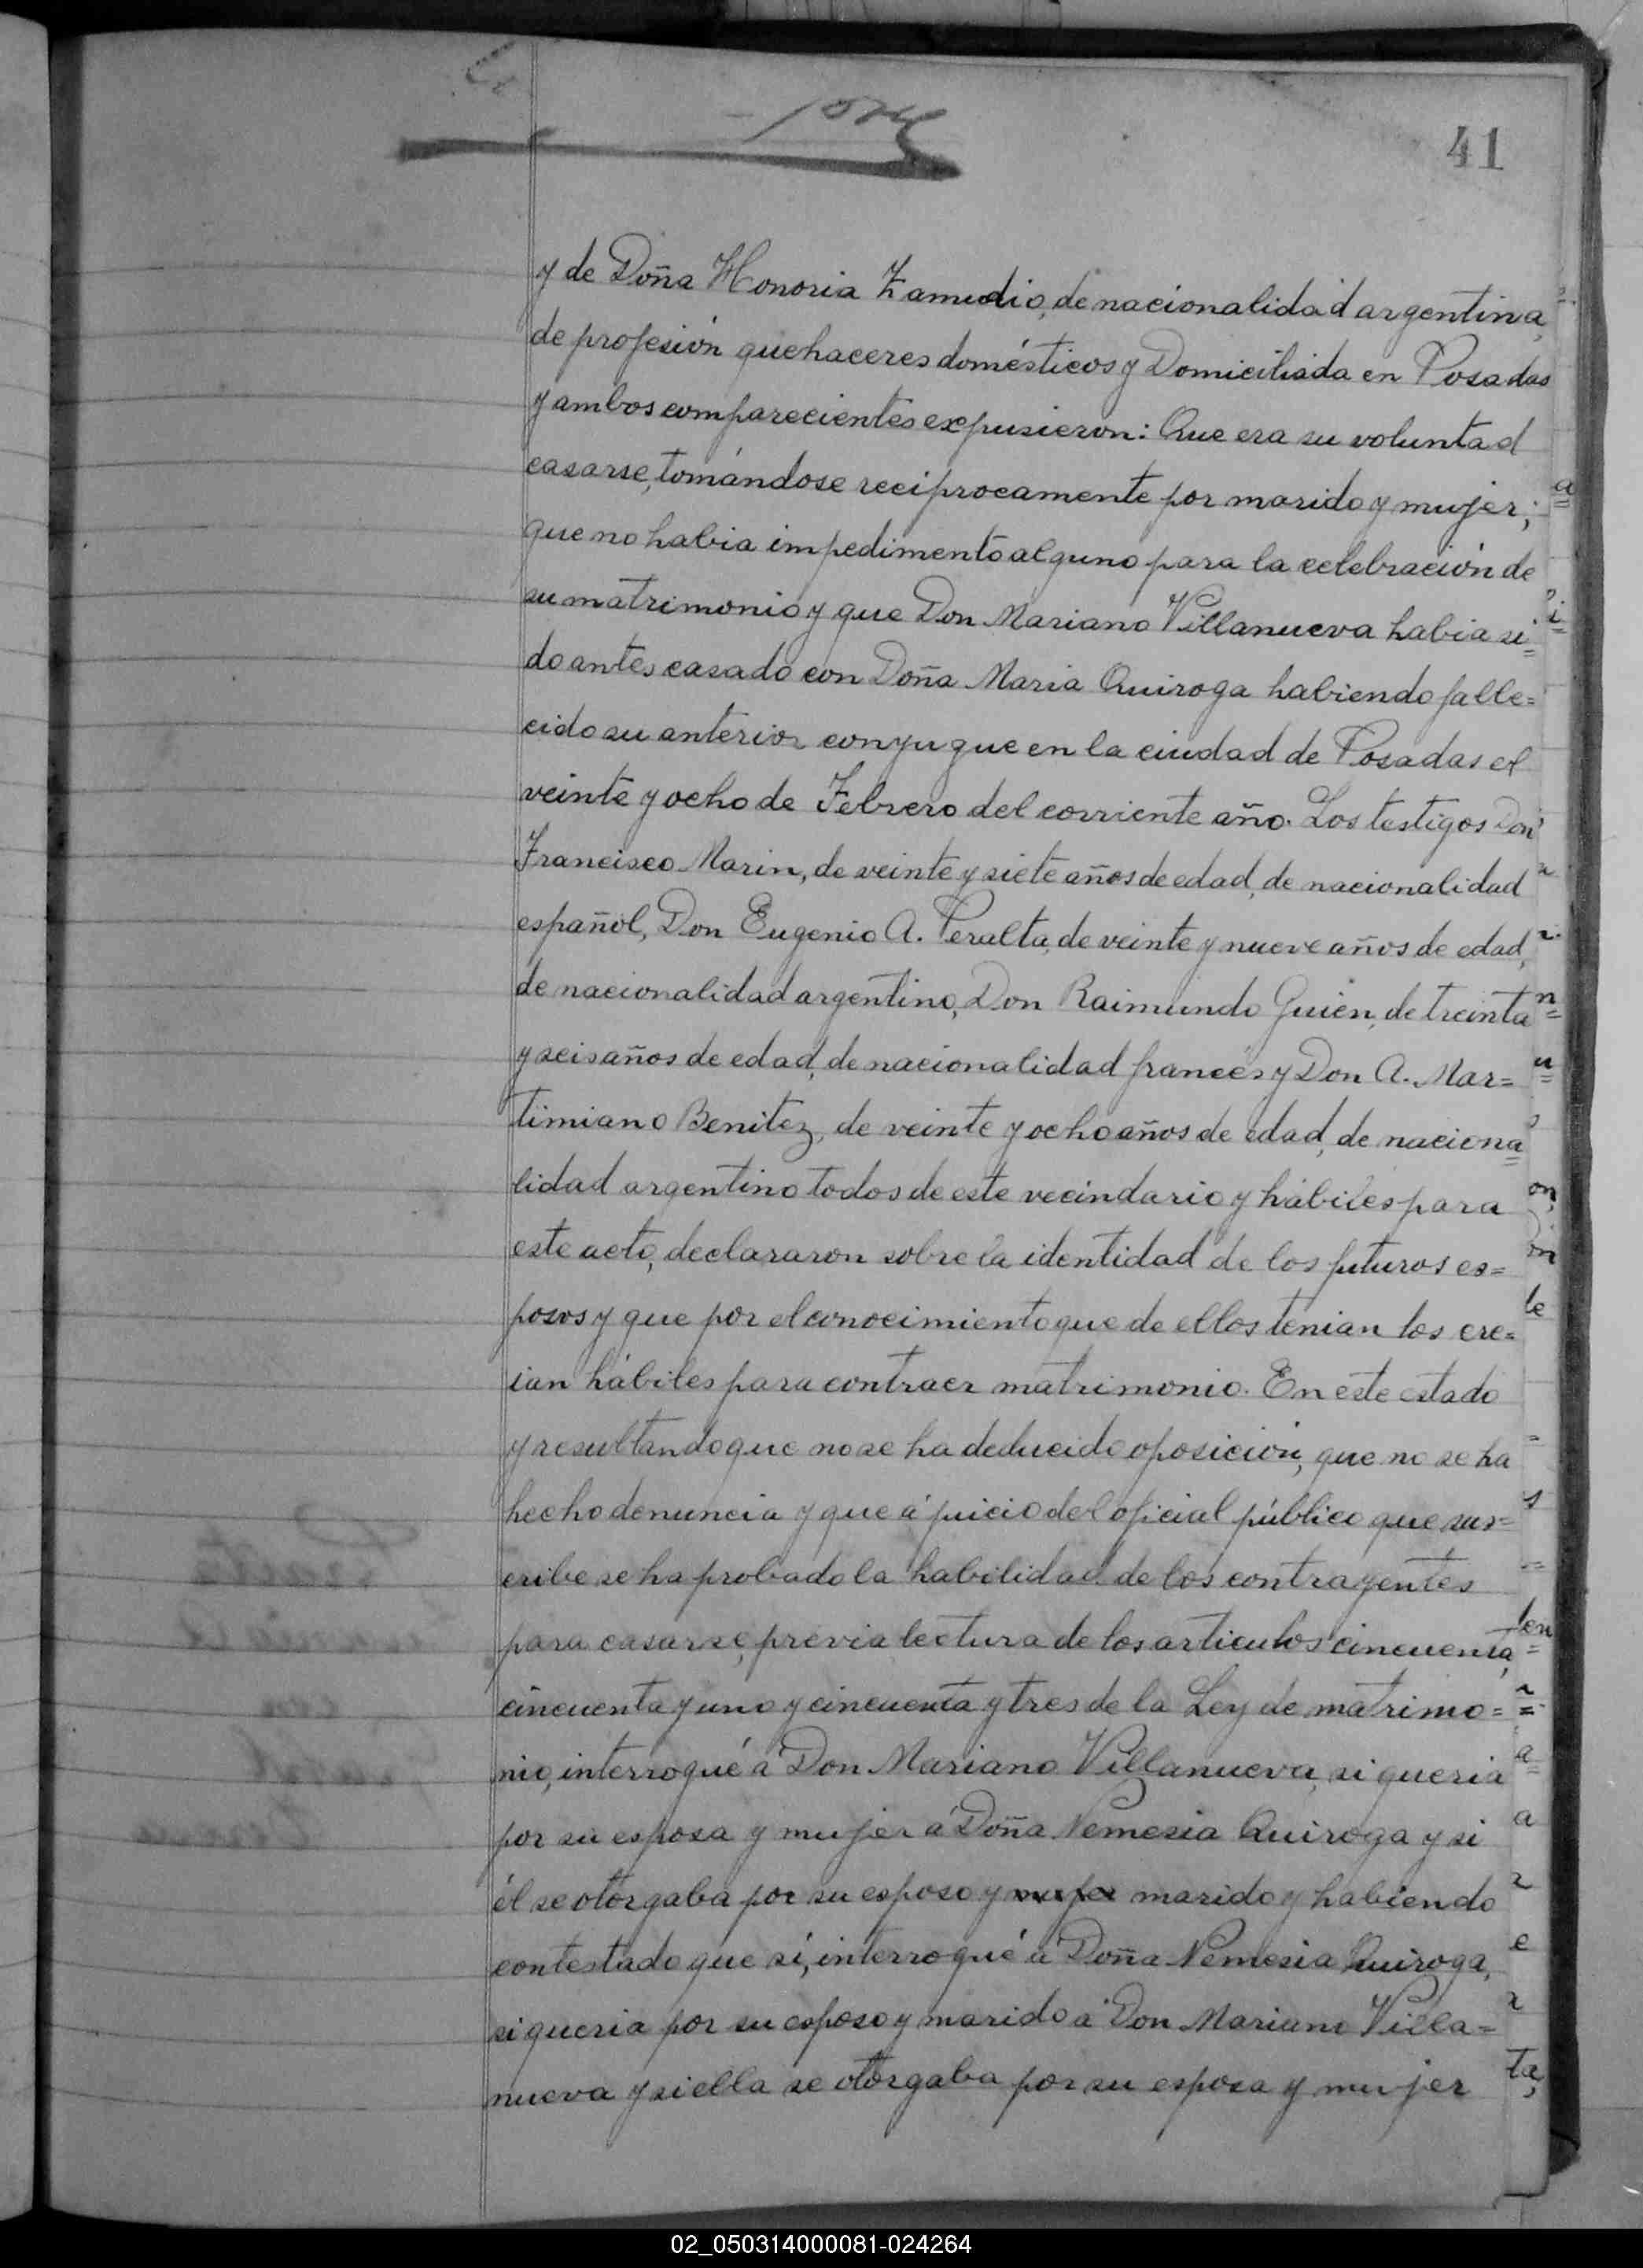 41
y de Doña Honoria Zamudio, de nacionalidad argentina,
de profesión quehaceres domésticos y Domiciliada en Posadas
y ambos comparecientes expusieron: Que era su voluntad
casarse, tomándose reciprocamente por marido y mujer;
que no habia impedimento alguno para la celebración de
su matrimonio y que Don Mariano Villanueva habia si=
do antes casado con Doña Maria Quiroga habiendo falle=
cido su anterior conyugue en la ciudad de Posadas el
veinte y ocho de Febrero del corriente año. Los testigos Don
Francisco Marin, de veinte y siete años de edad, de nacionalidad
español, Don Eugenio A. Peralta, de veinte y nueve años de edad,
de nacionalidad argentino, Don Raimundo Guien, de treinta
y seis años de edad, de nacionalidad francés y Don A. Mar=
timiano Benitez, de veinte y ocho años de edad, de naciona=
lidad argentino todos de este vecindario y hábiles para
este acto, declararon sobre la identidad de los futuros es=
posos y que por el conocimiento que de ellos tenian los cre=
ian hábiles para contraer matrimonio. En este estado
y resultando que no se ha deducido oposición, que no se ha
hecho denuncia y que á juicio del oficial público que sus=
cribe se ha probado la habilidad de los contrayentes
para casarse, previa lectura de los articulos cincuenta,
cincuenta y uno y cincuenta y tres de la Ley de matrimo=
nio, interrogué á Don Mariano Villanueva, si queria
por su esposa y mujer á Doña Nemesia Quiroga y si
él se otorgaba por su esposo y mujer marido y habiendo
contestado que sí, interrogué á Doña Nemesia Quiroga,
si queria por su esposo y marido á Don Mariano Villa=
nueva y si ella se otorgaba por su esposa y mujer
02_050314000081-024264